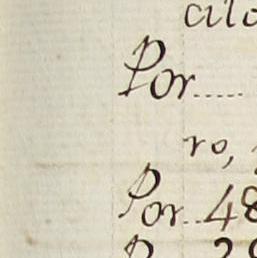 cilo
Por......
ro,
Por..48